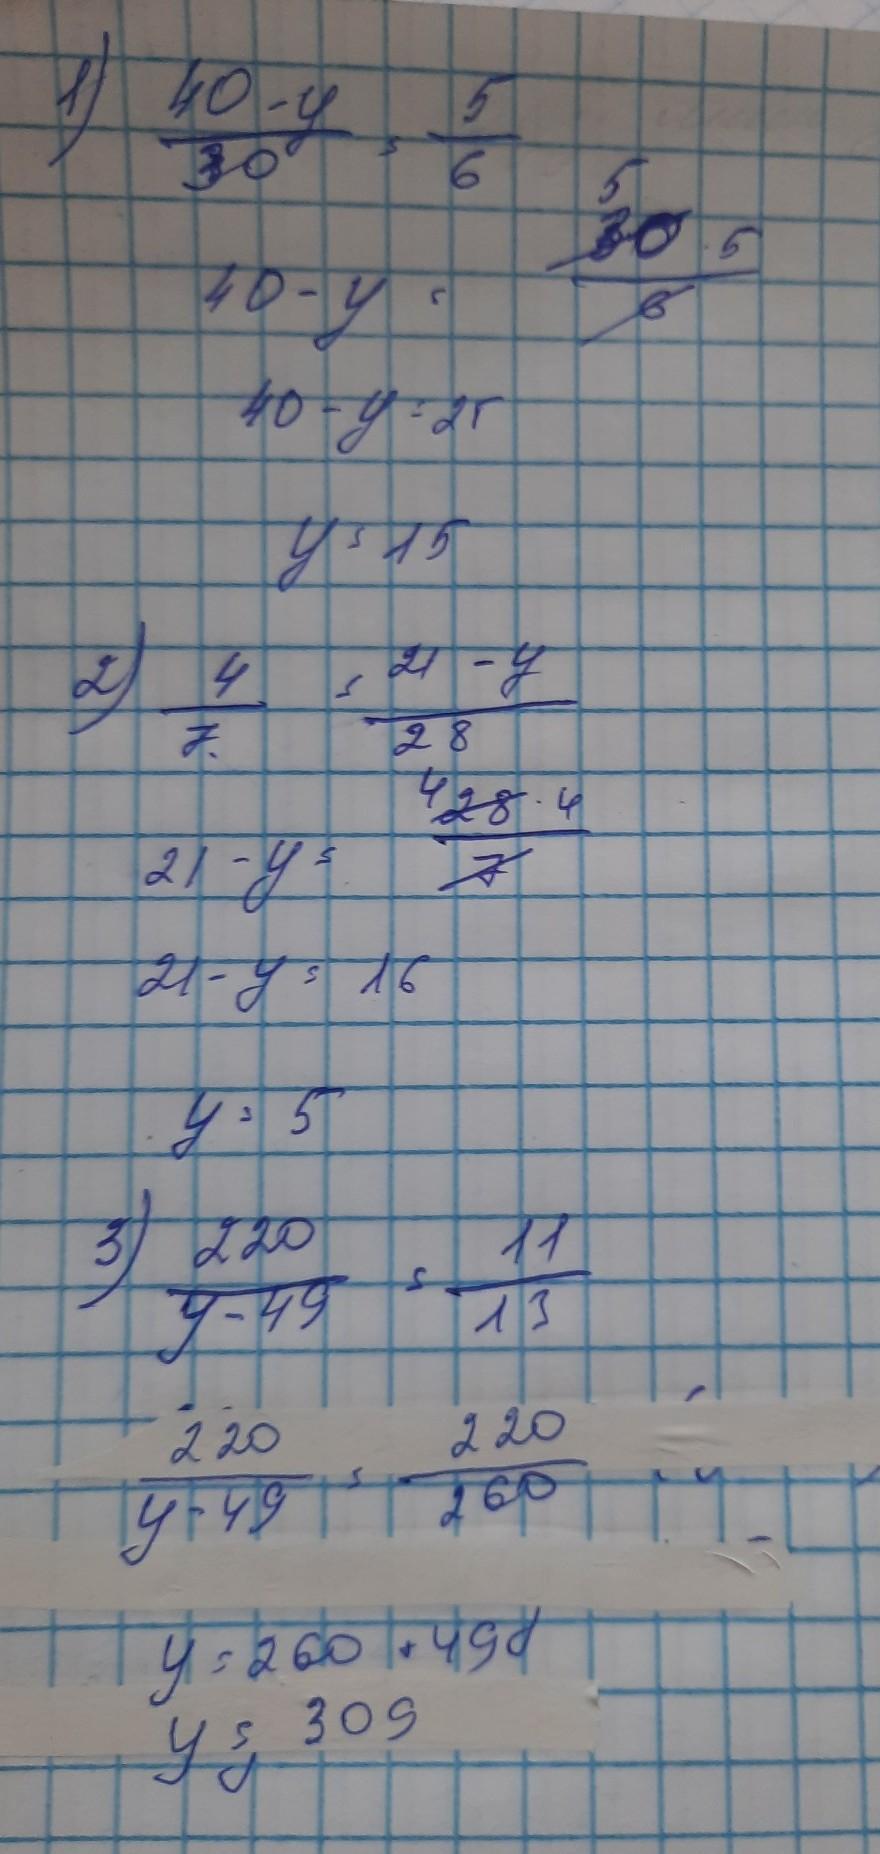 1) (40 - y)/30 = 5/6
40 - y = (30 · 5)/6 5
40 - y = 25
y = 15
2) 4/7 = (21 - y)/28
21 - y = (28 · 4)/7 4
21 - y = 16
y = 5
3) 220/(y - 49) = 11/13
220/(y - 49) = 220/260
y = 260 + 49
y = 309